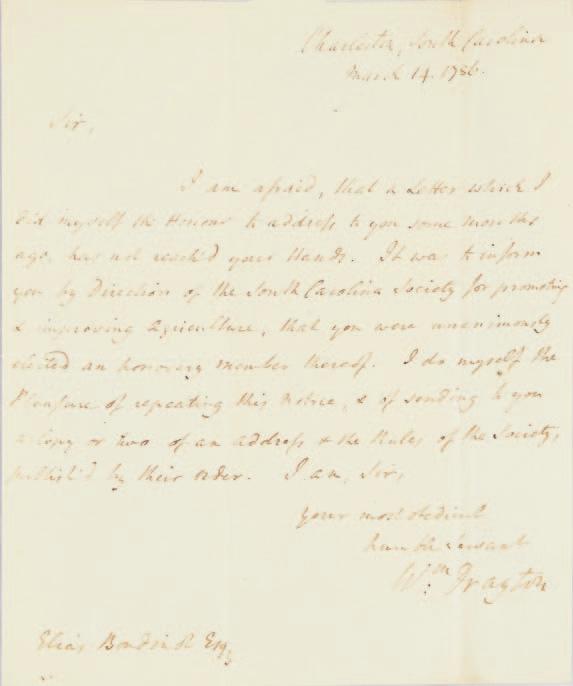 Charleston, South Carolina
March 14. 1786.
Sir,
I am afraid, that a Letter which I
did myself the Honour to address to you some months
ago, has not reach'd your Hands. It was to inform
you by Direction of the South Carolina Society for promoting
& improving Agriculture, that you were unanimously
elected an honorary member thereof. I do myself the
Pleasure of repeating this Notice, & of sending to you
a Copy or two of an address & the Rules of the Society,
publish'd by their order. I am, Sir,
your most obedient
humble Servant
Wm Drayton
Elias Boudinot Esq